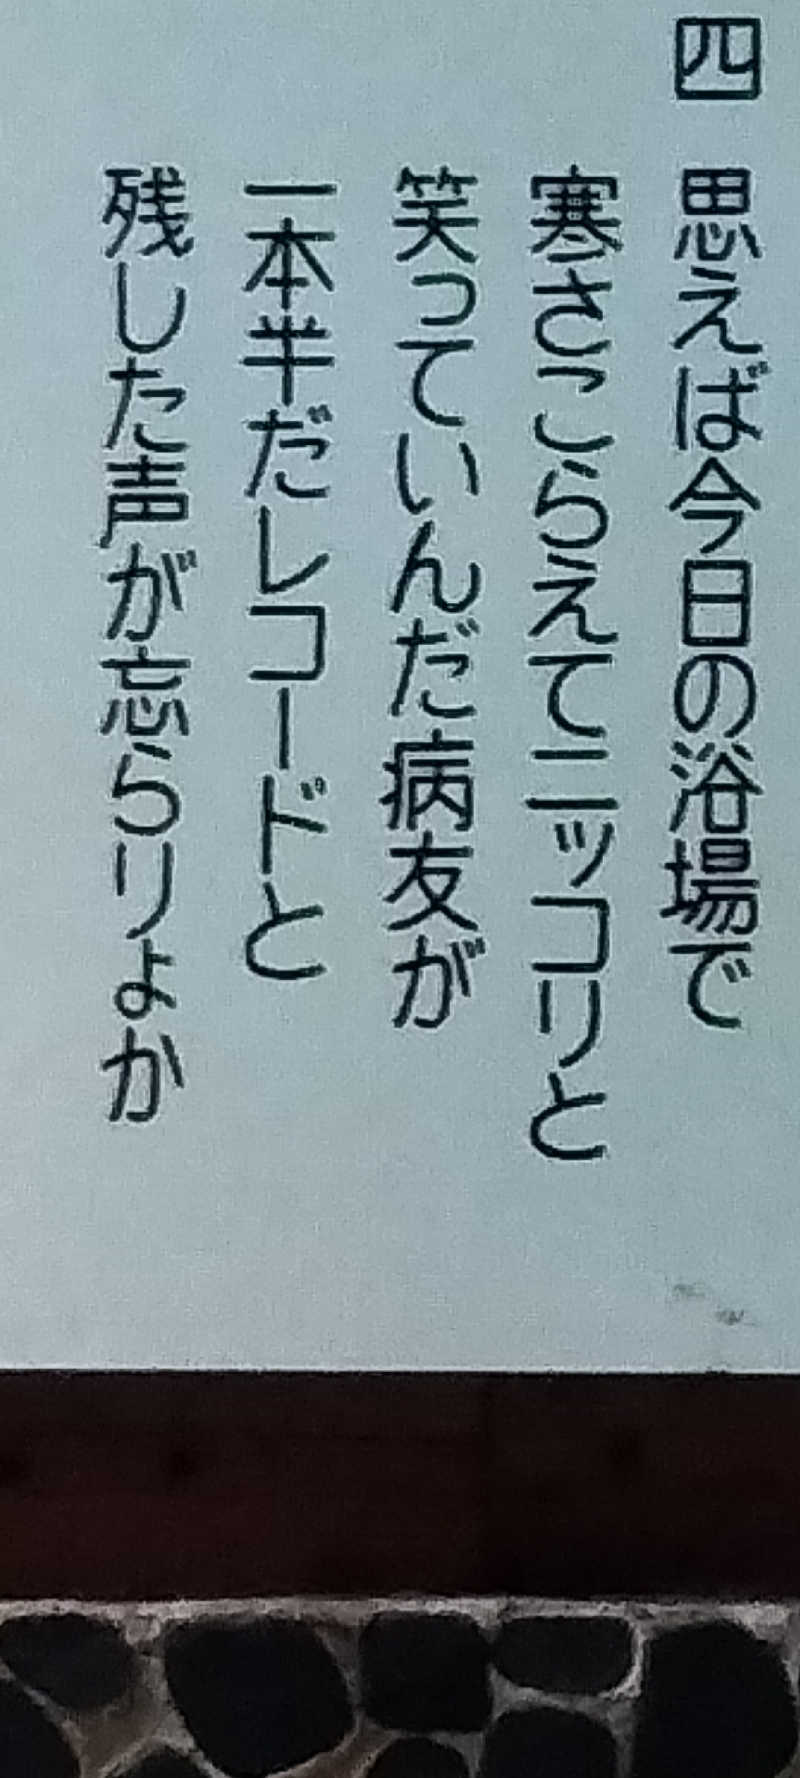 四 思えば今日の浴場で
寒さこらえてニッコリと
笑っていんだ病友が
一本半だレコードと
残した声が忘らりょか